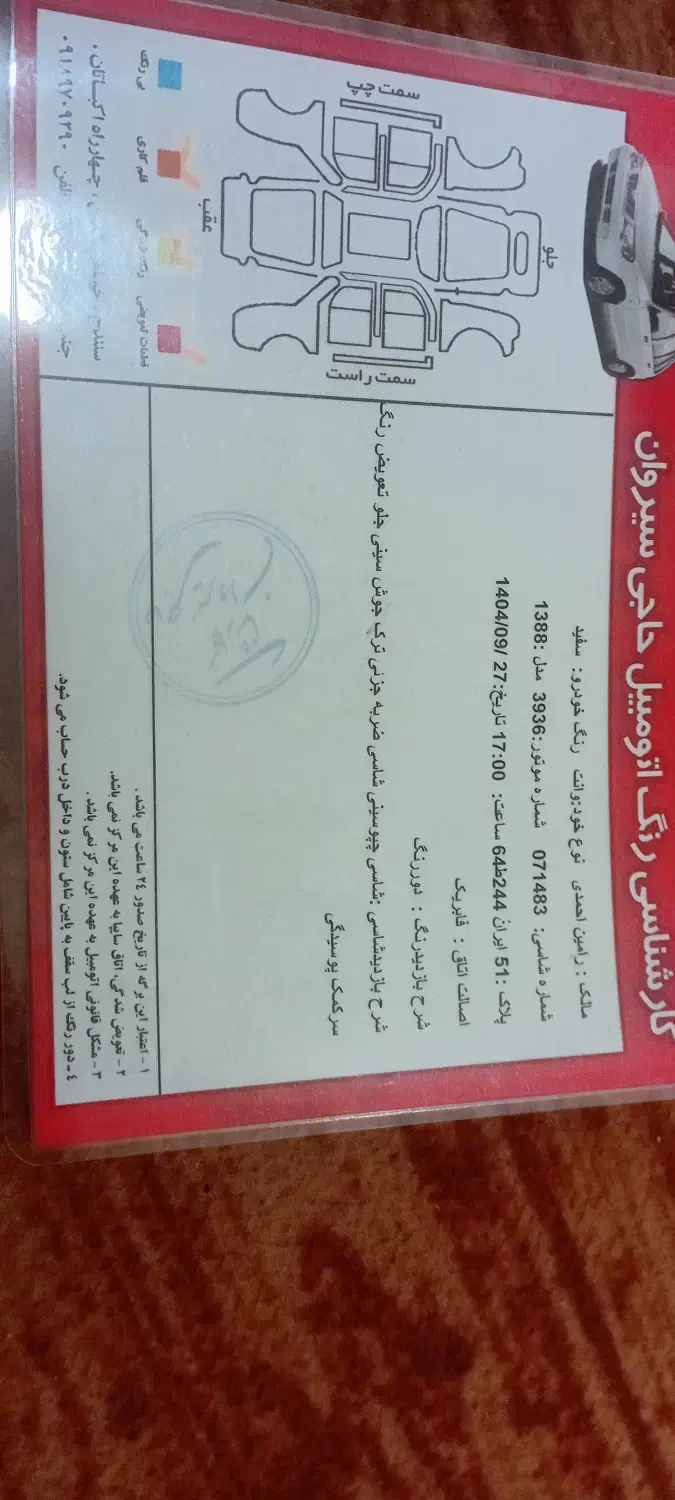 کارشناسی رنگ اتومبیل حاجی سیروان
مالک : رامین احمدی نوع خود:وانت رنگ خودرو: سفید
شماره شاسی: 071483 شماره موتور:3936 مدل :1388
پلاک :51 ایران 244ط64 ساعت: 17:00 تاریخ:27 /1404/09
اصالت اتاق : فابریک
شرح بازدیدرنگ : دوررنگ
شرح بازدیدشاسی :شاسی چپوسینی شاسی ضربه جزئی ترک جوش سینی جلو تعویض رنگ
سرکمک پوسیدگی
جلو
سمت چپ
سمت راست
عقب
بی رنگ
قلم کاری
قطعات تعویضی
چهارراه اکباتان ،
تلفن ۰۹۱۸۹۷۰۹۳۹۰
۱ - اعتبار این برگه از تاریخ صدور ۲٤ ساعت می باشد .
۲ - تعویض شدگی، اتاق سایپا به عهده این مرکز نمی باشد.
۳ - مشکل قانونی اتومبیل به عهده این مرکز نمی باشد .
٤ - دور رنگ از لب سقف به پایین شامل ستون و داخل درب حساب می شود.